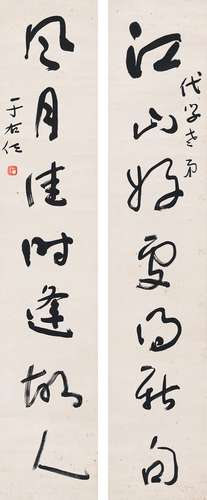 江山好處得新句
代學老弟
風月佳時逢故人
于右任